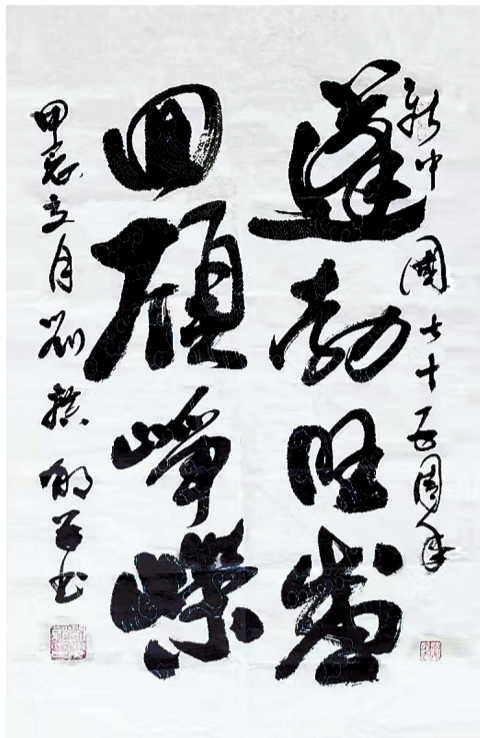 新中國七十五周年
蓬勃旺盛
回顧崢嶸
甲辰五月劉书